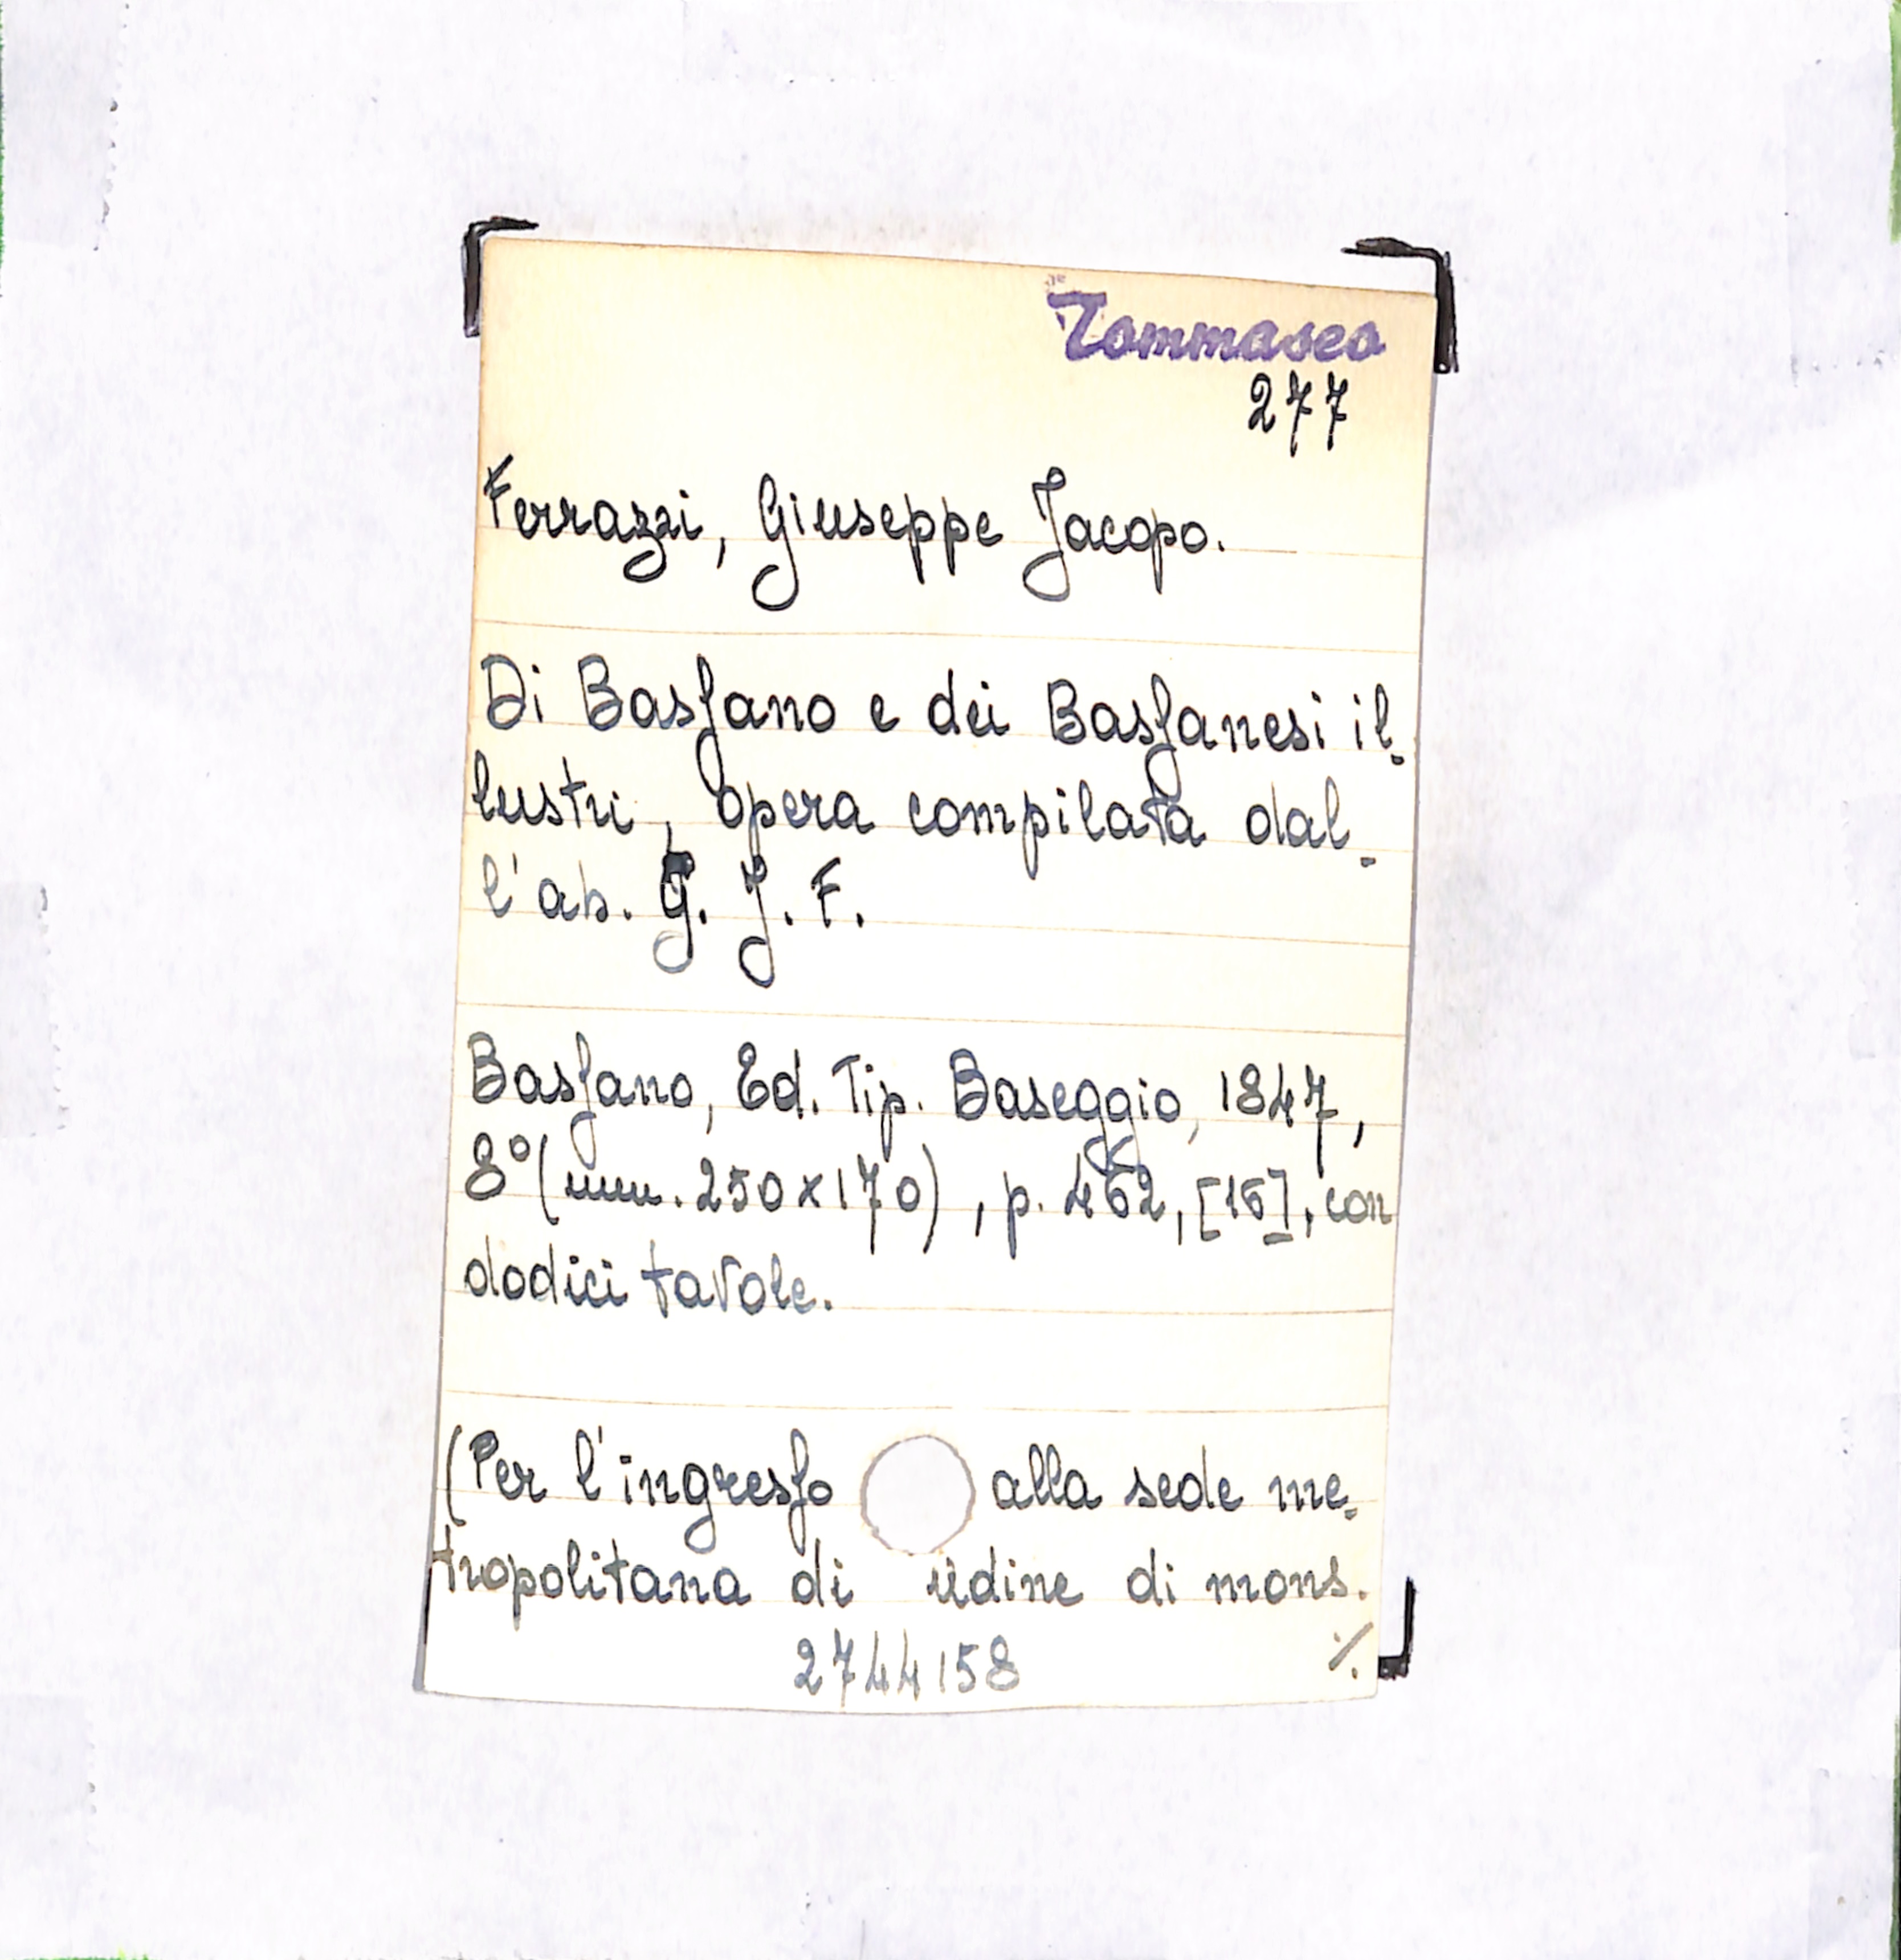 Tommaseo
277
Ferrazzi, Giuseppe Jacopo.
Di Basſano e dei Basſanesi il-
lustri, opera compilata dal-
l'ab. G. J. F.
Basſano, Ed. Tip. Baseggio, 1847,
8°(mm. 250x170), p. 462, [16], con
dodici tavole.
(Per l'ingresſo alla sede me-
tropolitana di Udine di mons.
2744158 ./.